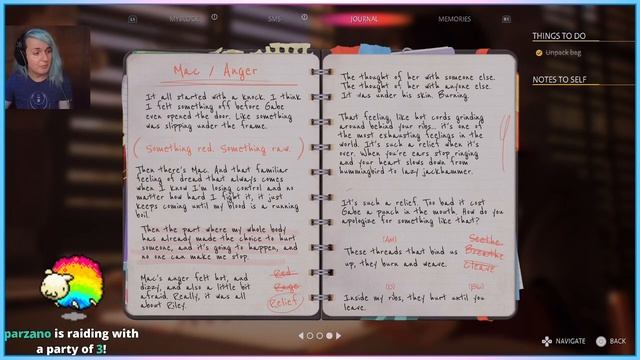 MY BLOCK
SMS
JOURNAL
MEMORIES
THINGS TO DO
Unpack bag
NOTES TO SELF
Mac / Anger
It all started with a knock. I think
I felt something off before Gabe
even opened the door. Like something
was slipping under the frame.
(Something red. Something raw.)
Then there's Mac. And that familiar
feeling of dread that always comes
when I know I'm losing control and no
matter how hard I fight it, it just
keeps coming until my blood is a running
boil.
Then the part where my whole body
has already made the choice to hurt
someone, and it's going to happen, and
no one can make me stop.
Mac's anger felt hot, and
dizzy, and also a little bit
afraid. Really, it was all
about Riley.
Red
Rage
Relief
The thought of her with someone else.
The thought of her with anyone else.
It was under his skin. Burning.
That feeling, like hot cords grinding
around behind your ribs... it's one of
the most exhausting feelings in the
world. It's such a relief when it's
over. When your ears stop ringing
and your heart slows down from
hummingbird to lazy jackhammer.
It's such a relief. Too bad it cost
Gabe a punch in the mouth. How do you
apologize for something like that?
(Am)
These threads that bind us
up, they burn and weave.
Seethe
Breathe
Cleave
Inside my ribs, they hurt until you
leave.
NAVIGATE
BACK
parzano is raiding with
a party of 3!